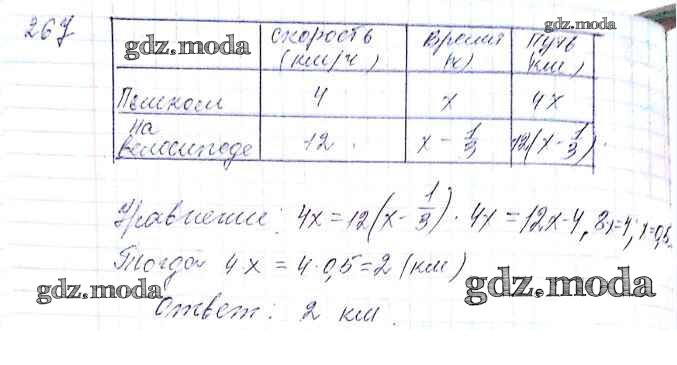 267
gdz.moda
gdz.moda
скорость (км/ч)
Время (ч)
Путь (км)
Пешком
4
x
4x
на велосипеде
12
x - 1/3
12(x - 1/3)
Уравнение: 4x = 12(x - 1/3). 4x = 12x - 4, 8x = 4; x = 0,5.
Тогда 4x = 4·0,5 = 2 (км)
gdz.moda
gdz.moda
Ответ: 2 км.